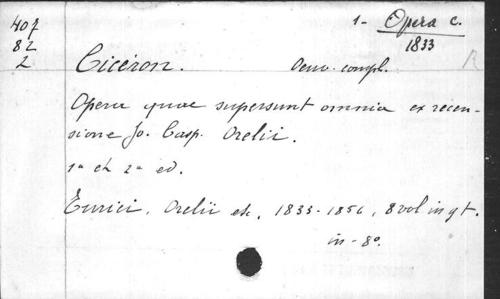 407
82
2
1- Opera c.
1833
Cicéron.
Oeuv. compl.
Opera quae supersunt omnia ex recen-
sione Jo. Casp. Orelii.
1a et 2a ed.
Turici, Orelii etc, 1833-1856, 8 vol in 9 t.
in-8o.